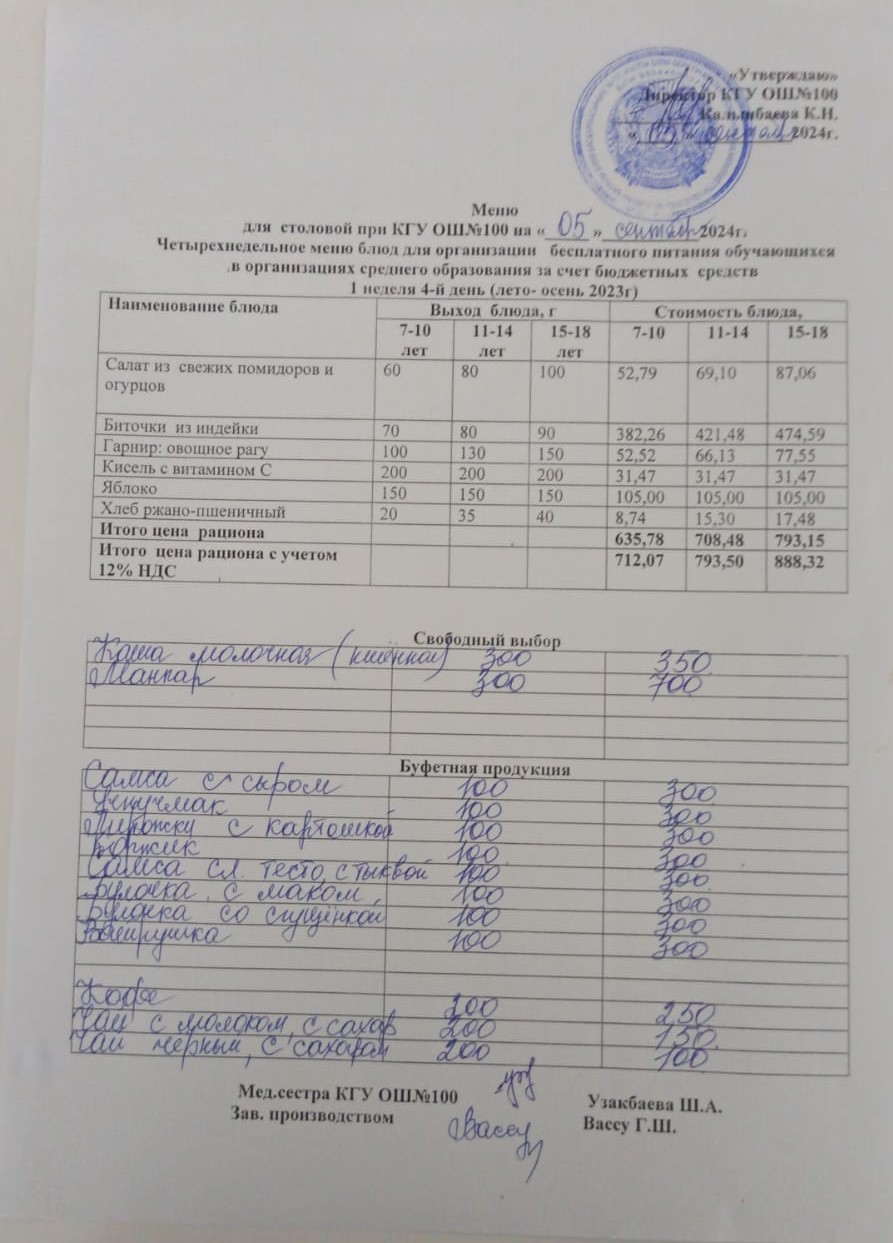 «Утверждаю»
Директор КГУ ОШ№100
К.Н.
«05» 2024г.
Меню
для столовой при КГУ ОШ№100 на « 05 » сентября 2024г.
Четырехнедельное меню блюд для организации бесплатного питания обучающихся
в организациях среднего образования за счет бюджетных средств
1 неделя 4-й день (лето- осень 2023г)
Наименование блюда Выход блюда, г Стоимость блюда,
7-10 лет 11-14 лет 15-18 лет 7-10 11-14 15-18
Салат из свежих помидоров и огурцов 60 80 100 52,79 69,10 87,06
Биточки из индейки 70 80 90 382,26 421,48 474,59
Гарнир: овощное рагу 100 130 150 52,52 66,13 77,55
Кисель с витамином С 200 200 200 31,47 31,47 31,47
Яблоко 150 150 150 105,00 105,00 105,00
Хлеб ржано-пшеничный 20 35 40 8,74 15,30 17,48
Итого цена рациона 635,78 708,48 793,15
Итого цена рациона с учетом 12% НДС 712,07 793,50 888,32
Свободный выбор
Каша молочная (пшенная) 300 350
Манпар 300 700
Буфетная продукция
Самса с сыром 100 300
Учпучмак 100 300
Пирожки с картошкой 100 300
Коржик 100 300
Самса сл. тесто с тыквой 100 300
Булочка с маком, 100 300
Булочка со сгущёнкой 100 300
Ватрушка 100 300
Кофе 200 250
Чай с молоком, с сахар 200 150
Чай черный, с сахаром 200 100
Мед.сестра КГУ ОШ№100 Узакбаева Ш.А.
Зав. производством Вассу Вассу Г.Ш.